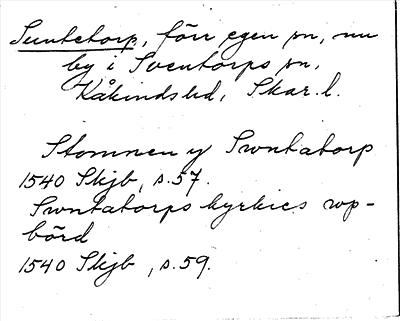 Suntetorp, förr egen sn, nu
by i Sventorps sn,
Kåkinds hd, Skar. l.
Stomnen y Swntatorp
1540 Skjb, s. 57.
Swntatorps kyrkies wp-
börd
1540 Skjb, s. 59.